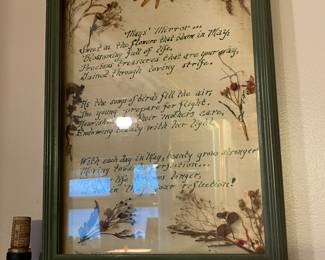 Mays' Mirror...
Sweet as the flowers that bloom in May,
Blossoming full of life,
Precious treasures that are your way,
Gained through loving strife.
As the songs of birds fill the air,
The young prepare for flight,
their mothers care,
Endowing beauty with her light.
With each day in May, beauty grows stronger
Moving
life linger,
in reflection!